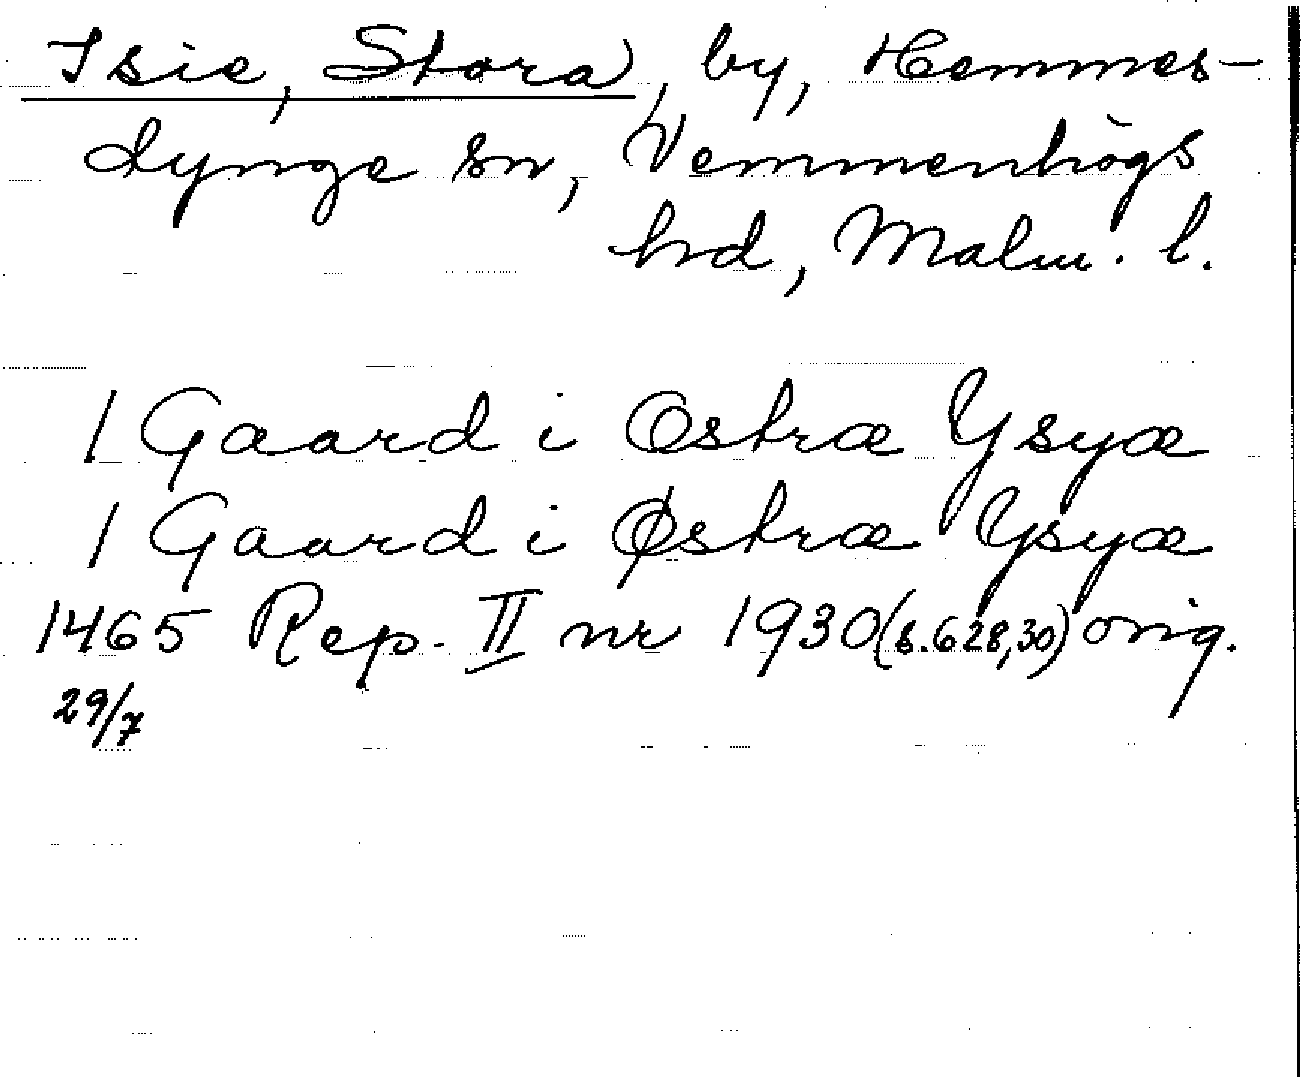 Isie, Stora, by, Hemmes-
dynge sn, Vemmenhögs
hd, Malm. l.
1 Gaard i Østræ Ysyæ
1 Gaard i Østræ Ysyæ
1465 Rep. II nr 1930 (s. 628, 30) orig.
29/7